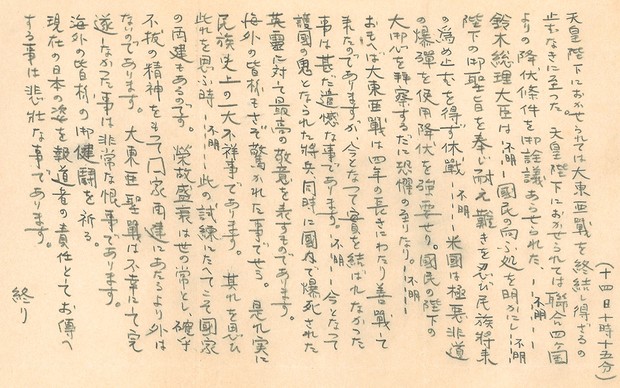 (十四日十時十五分)
天皇陛下におかせられては大東亜戰を終結し得ざるの
止むなきに至った。天皇陛下におかせられては聯合四ヶ國
よりの降伏條件を御詮議あらせられた、---不明---
鈴木総理大臣は---不明--國民の向ふ処を明かにし--不明
陛下の御聖旨を奉じ耐え難きを忍び民族將来
の為め止むを得ず休戰----不明----米國は極悪非道
の爆彈を使用降伏を強要せり。國民の陛下の
大御心を拝察するだに恐懼の至りなり。----不明
おもへば大東亜戰は四年の長きにわたり善戰して
来たのでありますが今となって實を結ばれなかった
事は甚だ遺憾な事であります。不明--今となって
護國の鬼となられた將兵同時に國内で爆死された
英霊に対て最高の敬意を表すものであります。
海外の皆様もさぞ驚かれた事でせう。是れ実に
民族史上の一大不祥事であります。其れを思ひ
此れを思ふ時---不明---此の試練にたへてこそ國家
の再建もあるのです。榮故盛衰は世の常とし、確乎
不拔の精神をもって國家再建にあたるより外は
ないのであります。大東亜聖戰は不幸にして完
遂しなかった事は非常な恨事であります。
海外の皆様の御健闘を祈る。
現在の日本の姿を報道者の責任としてお傳へ
する事は悲壮な事であります。
終り